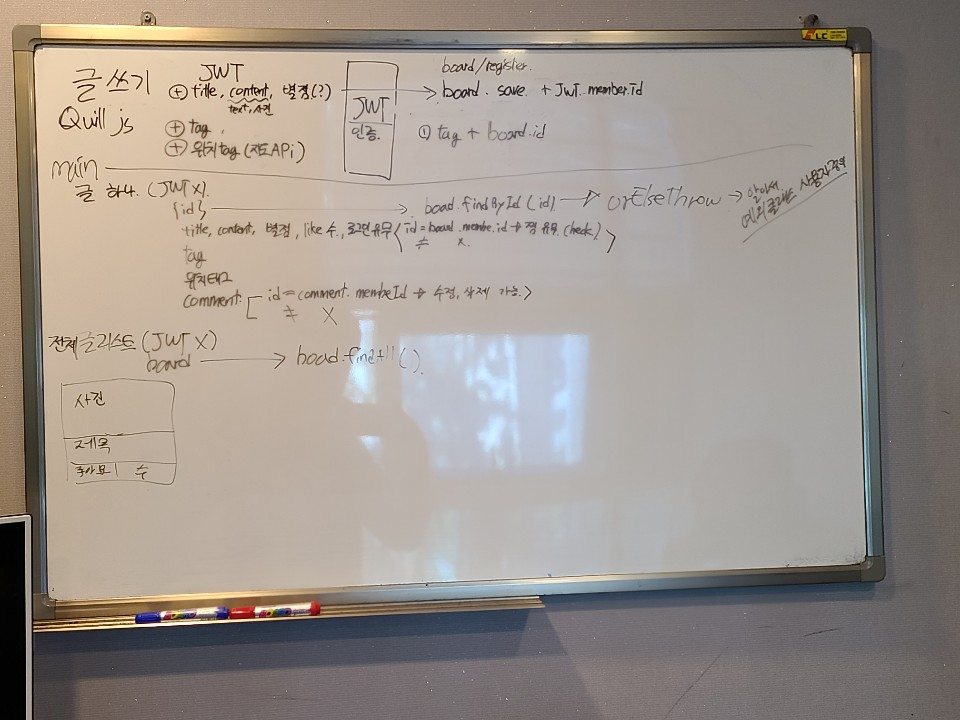 글쓰기
Quill js
JWT
⊕ title, content, 별점(?)
text, 사진
⊕ tag,
⊕ 위치tag (지도API)
JWT
인증.
board/register.
board. save. + JWT. member.id
① tag + board.id
main
글 하나. (JWT X).
{id} → board.findById (id). → orElseThrow → 알아서 예외클래스 사용자정의
title, content, 별점, like 수, 로그인유무 < id = board.membe.id →
≠ X.
tag
위치태그
comment. [ id = comment. membeId → 수정, 삭제 가능. >
≠ X
전체글리스트 (JWT X)
board → boad.findAll().
사진
제목
좋아요 수
LC